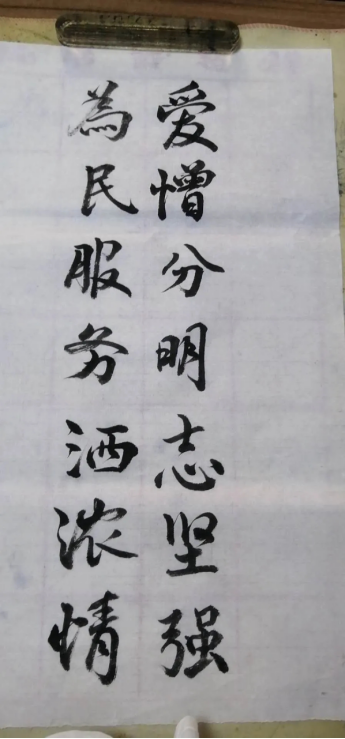 爱憎分明志坚强
為民服务洒浓情